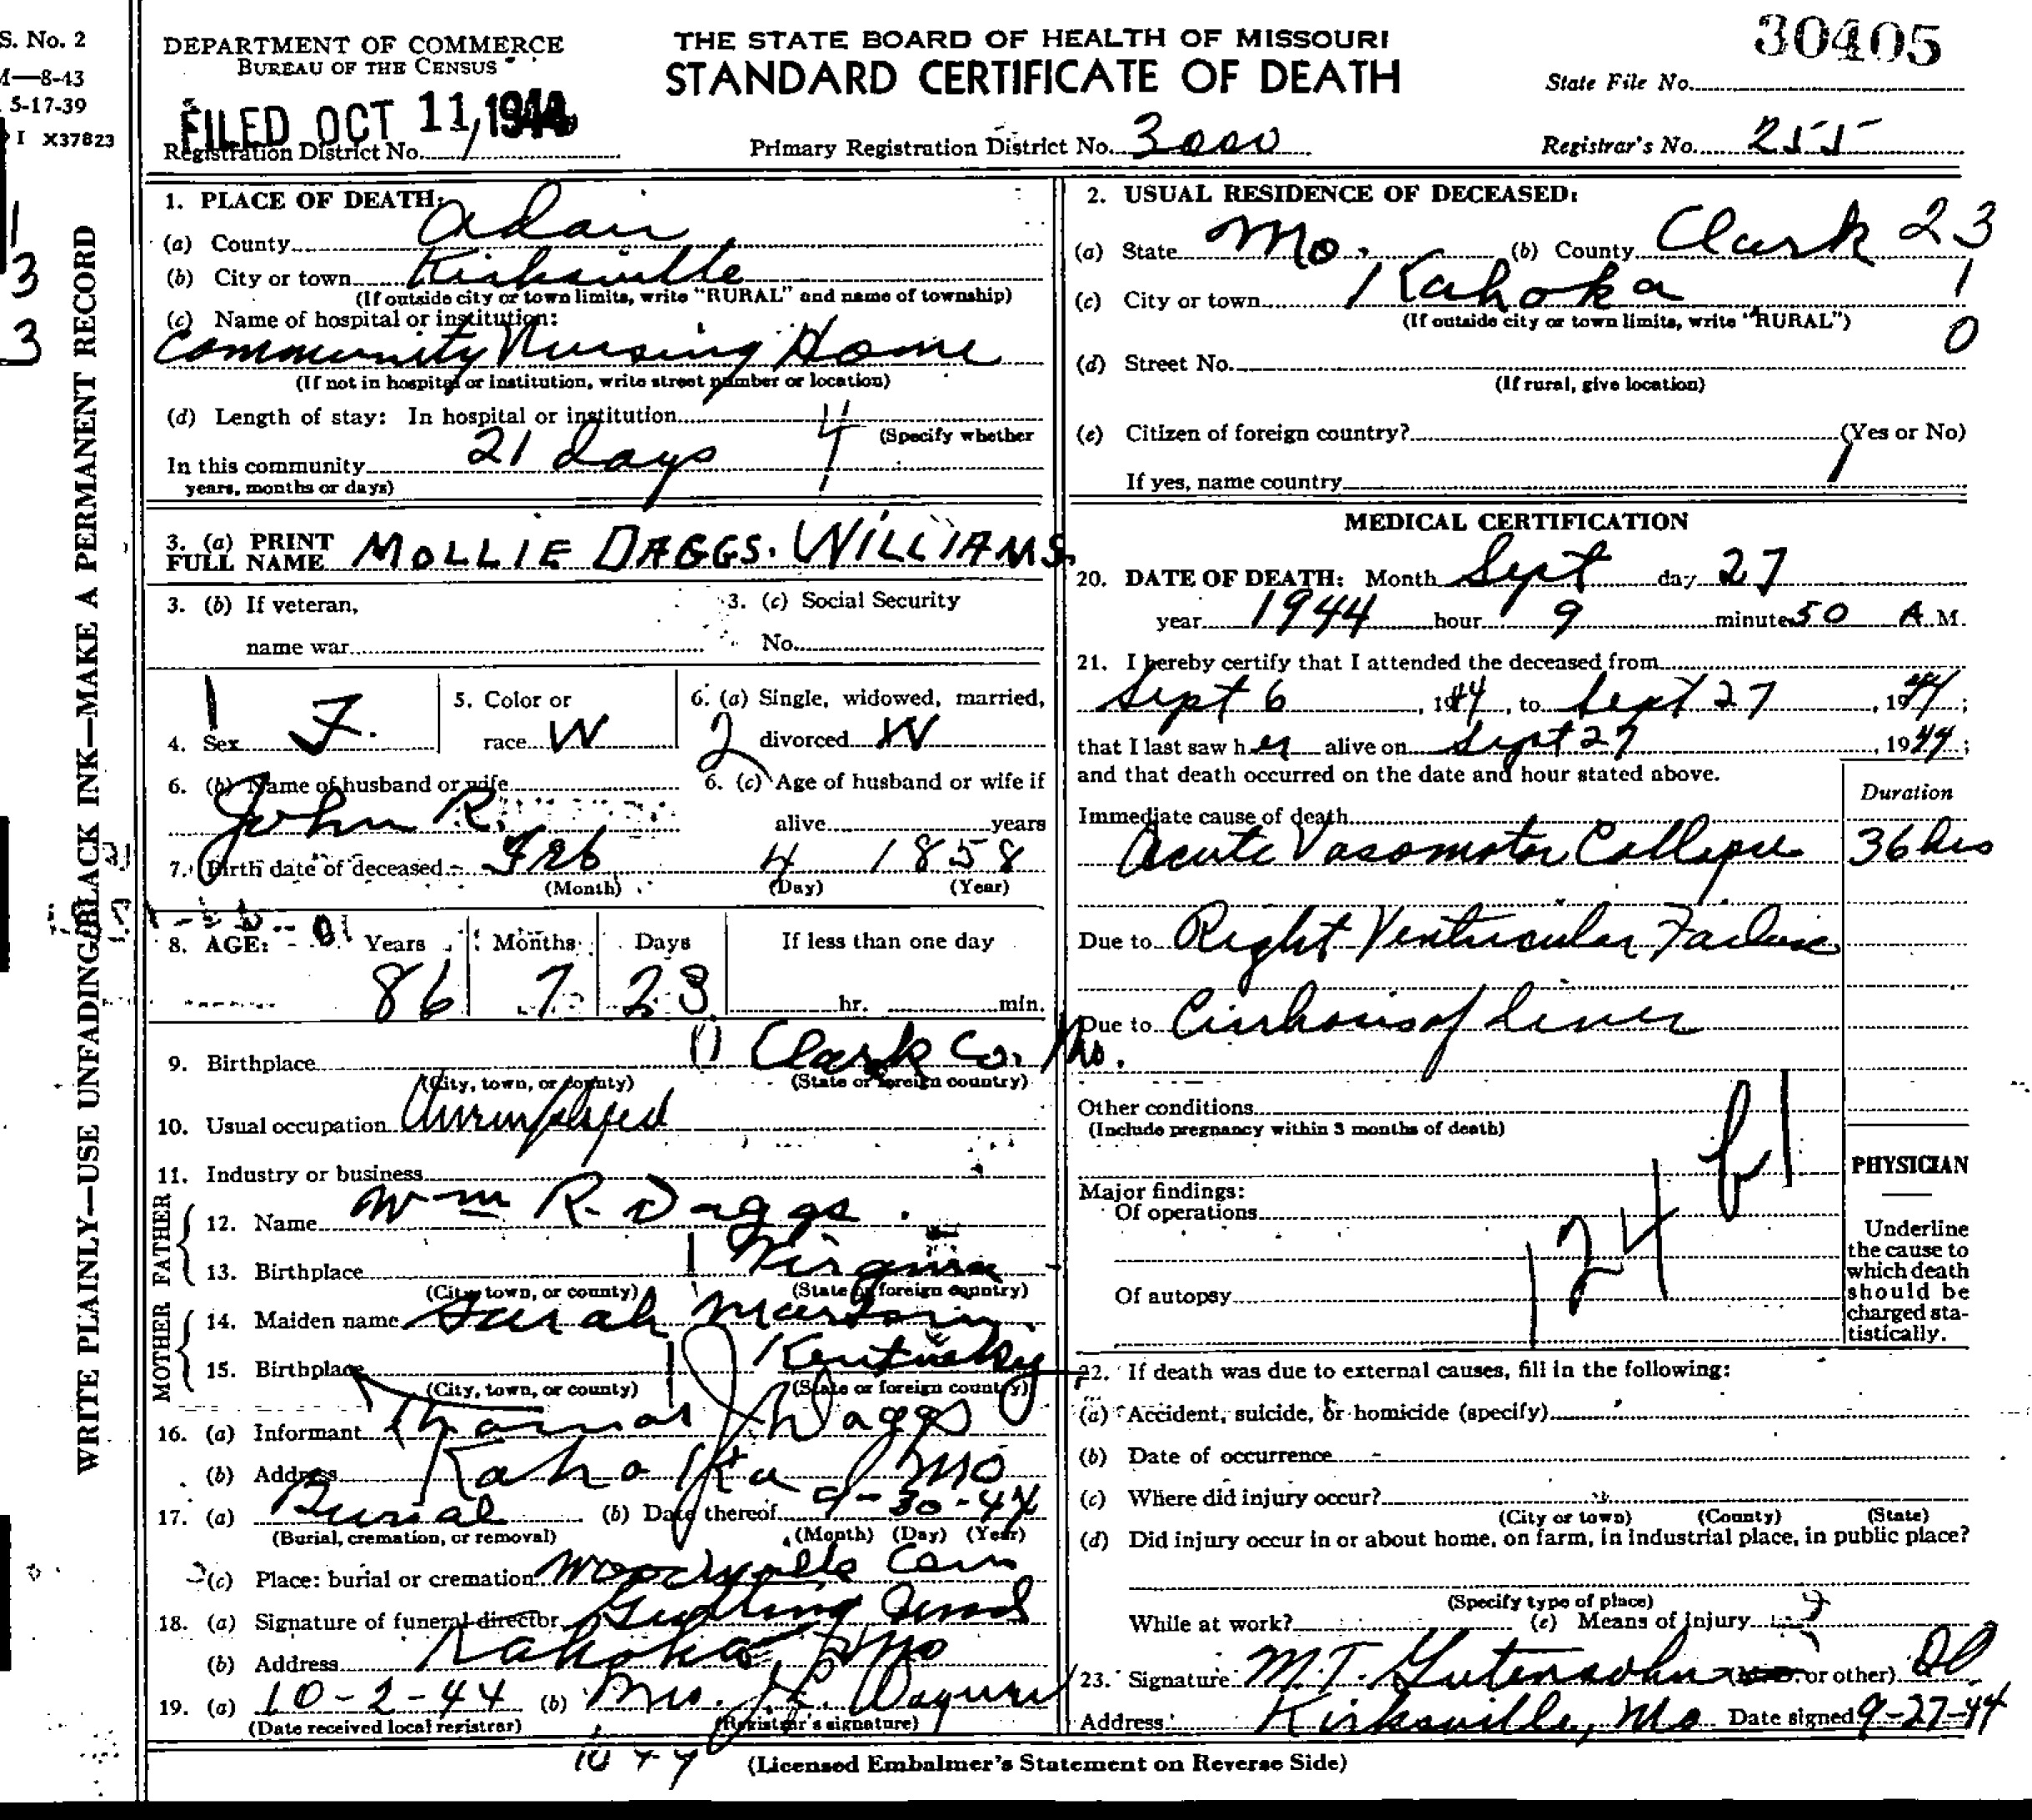 S. No. 2
M—8-43
5-17-39
I X37823
1
3
3
WRITE PLAINLY—USE UNFADING BLACK INK—MAKE A PERMANENT RECORD
DEPARTMENT OF COMMERCE
BUREAU OF THE CENSUS
FILED OCT 11, 1944
Registration District No. 1
THE STATE BOARD OF HEALTH OF MISSOURI
STANDARD CERTIFICATE OF DEATH
Primary Registration District No. 3000
30405
State File No.
Registrar's No. 255
1. PLACE OF DEATH:
(a) County Adair
(b) City or town Kirksville
(If outside city or town limits, write "RURAL" and name of township)
(c) Name of hospital or institution:
Community Nursing Home
(If not in hospital or institution, write street number or location)
(d) Length of stay: In hospital or institution
(Specify whether
In this community 21 days
years, months or days)
3. (a) PRINT
FULL NAME MOLLIE DAGGS. WILLIAMS.
3. (b) If veteran,
name war
3. (c) Social Security
No.
4. Sex F.
5. Color or
race W
6. (a) Single, widowed, married,
2 divorced W
6. (b) Name of husband or wife
John R.
6. (c) Age of husband or wife if
alive years
7. Birth date of deceased Feb 4 1858
(Month) (Day) (Year)
8. AGE: Years Months Days If less than one day
86 7 23 hr. min.
9. Birthplace Clark Co. Mo.
(City, town, or county) (State or foreign country)
10. Usual occupation Unemployed
11. Industry or business
FATHER
12. Name Wm R. Daggs.
13. Birthplace Virginia
(City, town, or county) (State or foreign country)
MOTHER
14. Maiden name Sarah
15. Birthplace Kentucky
(City, town, or county) (State or foreign country)
16. (a) Informant Thomas J Daggs
(b) Address Kahoka Mo
17. (a) Burial (b) Date thereof 9-30-44
(Burial, cremation, or removal) (Month) (Day) (Year)
(c) Place: burial or cremation Woodville Cem
18. (a) Signature of funeral director
(b) Address Kahoka, Mo
19. (a) 10-2-44 (b) Mrs. J.L.
(Date received local registrar) (Registrar's signature)
2. USUAL RESIDENCE OF DECEASED:
(a) State Mo. (b) County Clark 23
(c) City or town Kahoka 1
(If outside city or town limits, write "RURAL")
0
(d) Street No.
(If rural, give location)
(e) Citizen of foreign country? (Yes or No)
If yes, name country
MEDICAL CERTIFICATION
20. DATE OF DEATH: Month Sept day 27
year 1944 hour 9 minute 50 A M.
21. I hereby certify that I attended the deceased from
Sept 6, 1944, to Sept 27, 1944;
that I last saw her alive on Sept 27, 1944;
and that death occurred on the date and hour stated above.
Duration
Immediate cause of death
Acute Vasomotor Collapse 36 hrs
Due to Right Ventricular Failure
Due to Cirrhosis of Liver
Other conditions
(Include pregnancy within 3 months of death)
Major findings:
Of operations
Of autopsy
124 b1
PHYSICIAN
Underline
the cause to
which death
should be
charged sta-
tistically.
22. If death was due to external causes, fill in the following:
(a) Accident, suicide, or homicide (specify)
(b) Date of occurrence
(c) Where did injury occur?
(City or town) (County) (State)
(d) Did injury occur in or about home, on farm, in industrial place, in public place?
(Specify type of place)
While at work? (e) Means of injury
23. Signature M.T. Gutensohn (M.D. or other) DO
Address Kirksville, Mo Date signed 9-27-44
(Licensed Embalmer's Statement on Reverse Side)